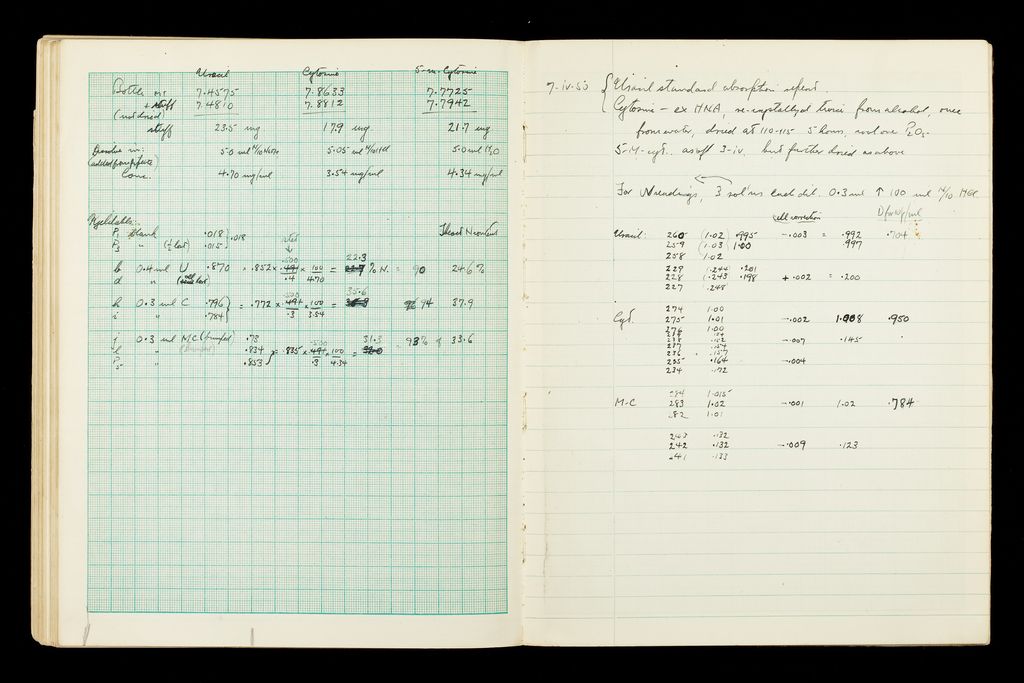 Uracil Cytosine 5-m-Cytosine
Bottle nr 7.4575 7.8633 7.7725
+ stuff 7.4810 7.8812 7.7942
(not dried)
stuff 23.5 mg 17.9 mg 21.7 mg
Dissolve in: 5.0 ml N/10 NaOH 5.05 ml N/10 HCl 5.0 ml H2O
(added from pipette)
Conc. 4.70 mg/ml 3.54 mg/ml 4.34 mg/ml
Kjeldahls:
P1 blank .018 } .018
P3 " (½ lost) .015
b 0.4 ml U .870 × .852 × × 100/4.70 = 22.3 % N. = 90 24.6 %
d "
h 0.3 ml C .796 } = .772 × × 100/3.54 = 35.6 94 37.9
i " .784
j 0.3 ml M/C .78 31.3 93% of 33.6
" .834 } = .835 × × 100/4.34 =
P5 " .853
7-iv-53 { Uracil standard absorption repeat.
Cytosine - ex HNA, re-crystallysed twice from alcohol, once
from water, dried at 110-115 5 hours, not over P2O5.
5-M-cyt. as off 3-iv, but further dried as above
For readings, 3 sol'ns each dil. 0.3 ml ↑ 100 ml N/10 HCl
cell correction
Uracil: 260 (1.02) .995 -.003 = .992 .704
259 (1.03) 1.00 .997
258 1.02
229 (.244 .201
228 (.243 .198 + .002 = .200
227 .248
274 1.00
Cyt. 275 1.01 -.002 1.008 .950
276 1.00
238 .152 -.007 .145
237 .154
236 .157
235 .164 -.004
234 .172
284 1.015
M-C 283 1.02 -.001 1.02 .784
282 1.01
243 .132
242 .132 -.009 .123
241 .133